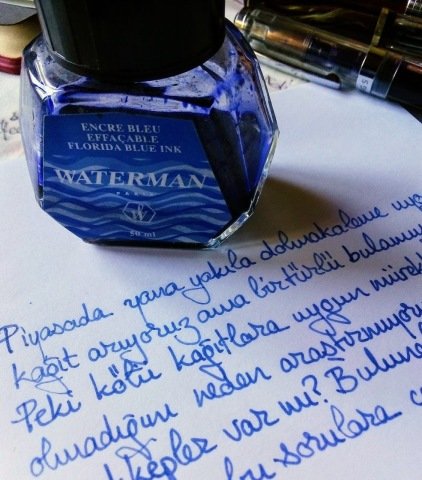 ENCRE BLEU
EFFAÇABLE
FLORIDA BLUE INK
WATERMAN
PARIS
W
50 ml
Piyasada yana yakıla dolmakaleme uyg
kağıt arıyoruz ama bir türlü bulamıyo
Peki kötü kağıtlara uygun mürekk
olmadığını neden araştırmıyoru
kkepler var mı? Buluna
bu sorulara c